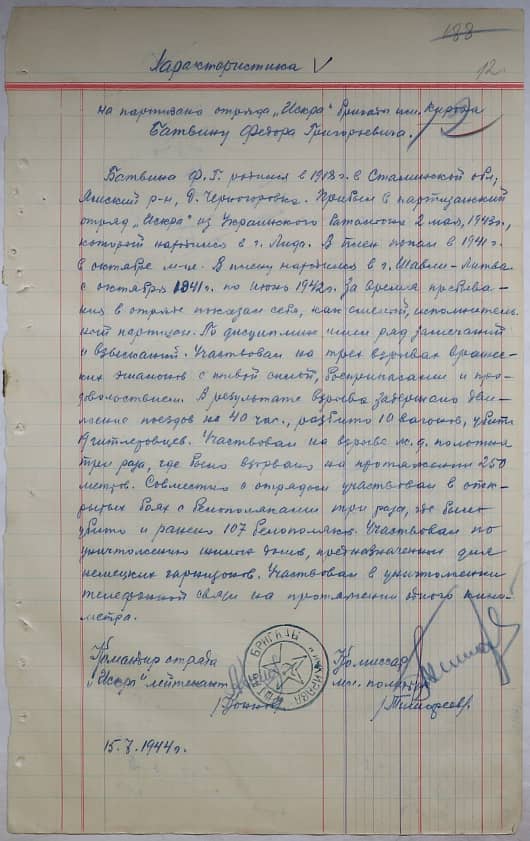 188
12
Характеристика V
на партизана отряда „Искра" бригады им. Кирова
Батвину Федора Григорьевича.
Батвина Ф.Г. родился в 1918 г. в Сталинской обл,
Ямский р-н, д. Черногоровка. Прибыл в партизанский
отряд „Искра" из Украинского батальона 2 мая, 1943 г.,
который находился в г. Лида. В плен попал в 1941 г.
в октябре м-це. В плену находился в г. Шавли-Литва
с октября 1941 г. по июнь 1942 г. За время пребыва-
ния в отряде показал себя, как смелый, исполнитель-
ный партизан. По дисциплине имел ряд замечаний
и взысканий. Участвовал на трех взрывах вражес-
ких эшалонов с живой силой, боеприпасами и про-
доволоствием. В результате взрыва задержано дви-
жение поездов на 40 час., разбито 10 вагонов, убито
19 гитлеровцев. Участвовал на взрыве ж.д. полотна
три раза, где было взорвано на протяжении 250
метров. Совместно с отрядом участвовал в откр-
ытых боях с белополяками три раза, где было
убито и ранено 107 белополяков. Участвовал по
уничтожению жилых домов, предназначенных для
немецких гарнизонов. Участвовал в уничтожении
телефонной связи на протяжении одного кило-
метра.
Командир отряда
„Искра" лейтенант
Комиссар
мл. политрук
/Тимофеев/
15.7.1944 г.